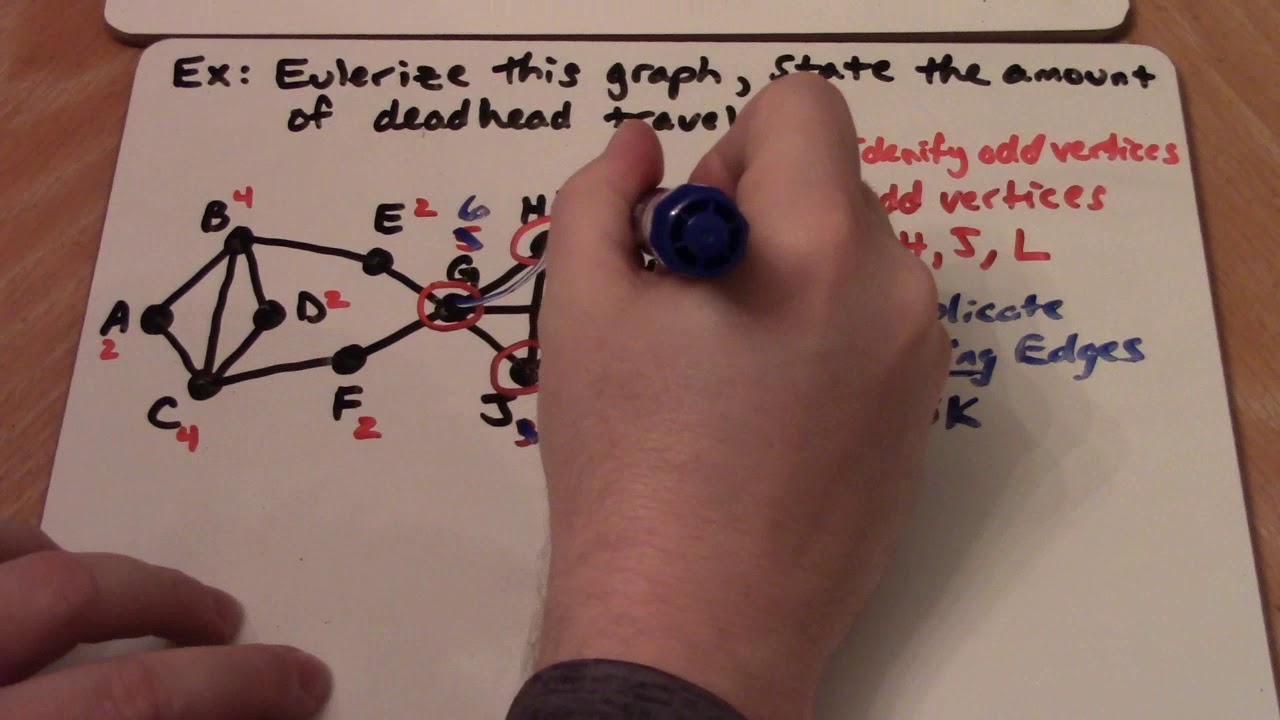 Ex: Eulerize this graph, State the amount
of deadhead travel
Idenify odd vertices
vertices
H, J, L
Edges
B 4
E 2
6
5
H
G
A
2
D 2
C 4
F 2
J
3
K